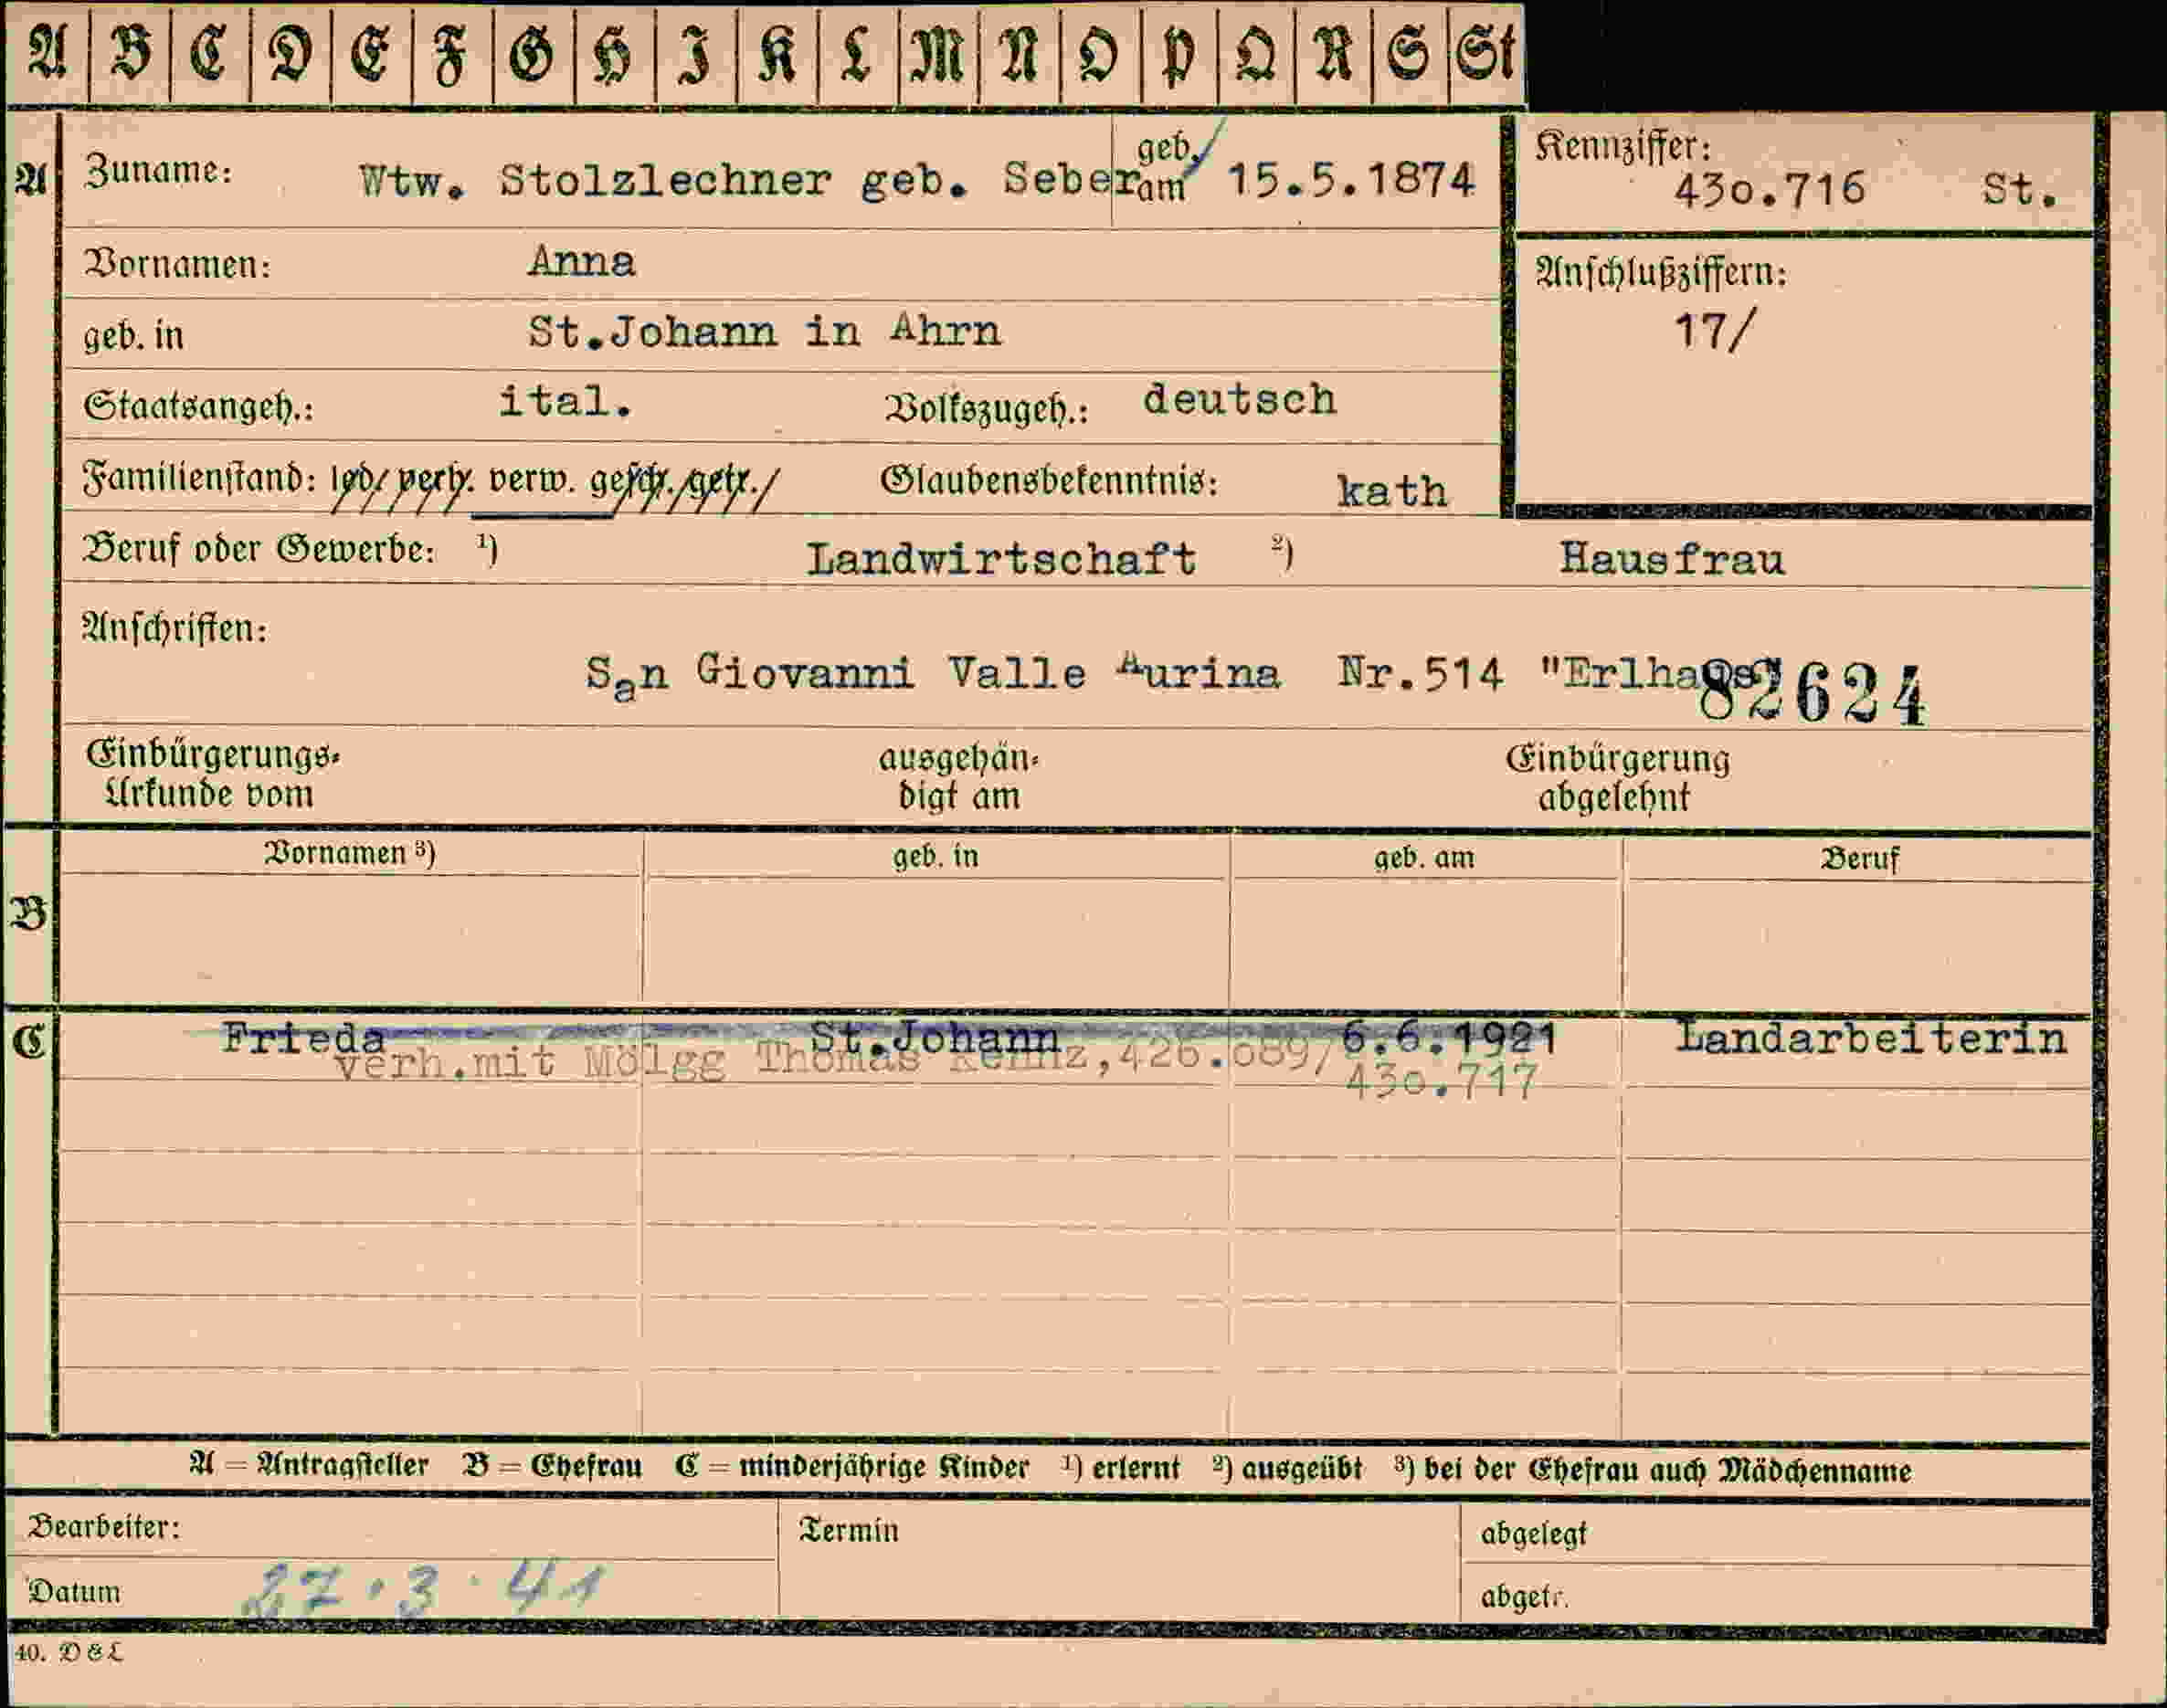 A B C D E F G H I K L M N O P Q R S St
A Zuname: Wtw. Stolzlechner geb. Seber geb. am 15.5.1874
Kennziffer: 430.716 St.
Vornamen: Anna
Anschlußziffern: 17/
geb. in St.Johann in Ahrn
Staatsangeh.: ital. Volkszugeh.: deutsch
Familienstand: led/ verh. verw. gesch./getr./ Glaubensbekenntnis: kath
Beruf oder Gewerbe: ¹) Landwirtschaft ²) Hausfrau
Anschriften:
San Giovanni Valle Aurina Nr.514 82624
Einbürgerungs- ausgehän- Einbürgerung
Urkunde vom digt am abgelehnt
B Vornamen ³) geb. in geb. am Beruf
C Frieda St.Johann 6.6.1921 Landarbeiterin
verh.mit Mölgg Thomas Kennz,426.689/
430.717
A = Antragsteller B = Ehefrau C = minderjährige Kinder ¹) erlernt ²) ausgeübt ³) bei der Ehefrau auch Mädchenname
Bearbeiter: Termin abgelegt
Datum 27.3.41 abgetr.
40. D & L